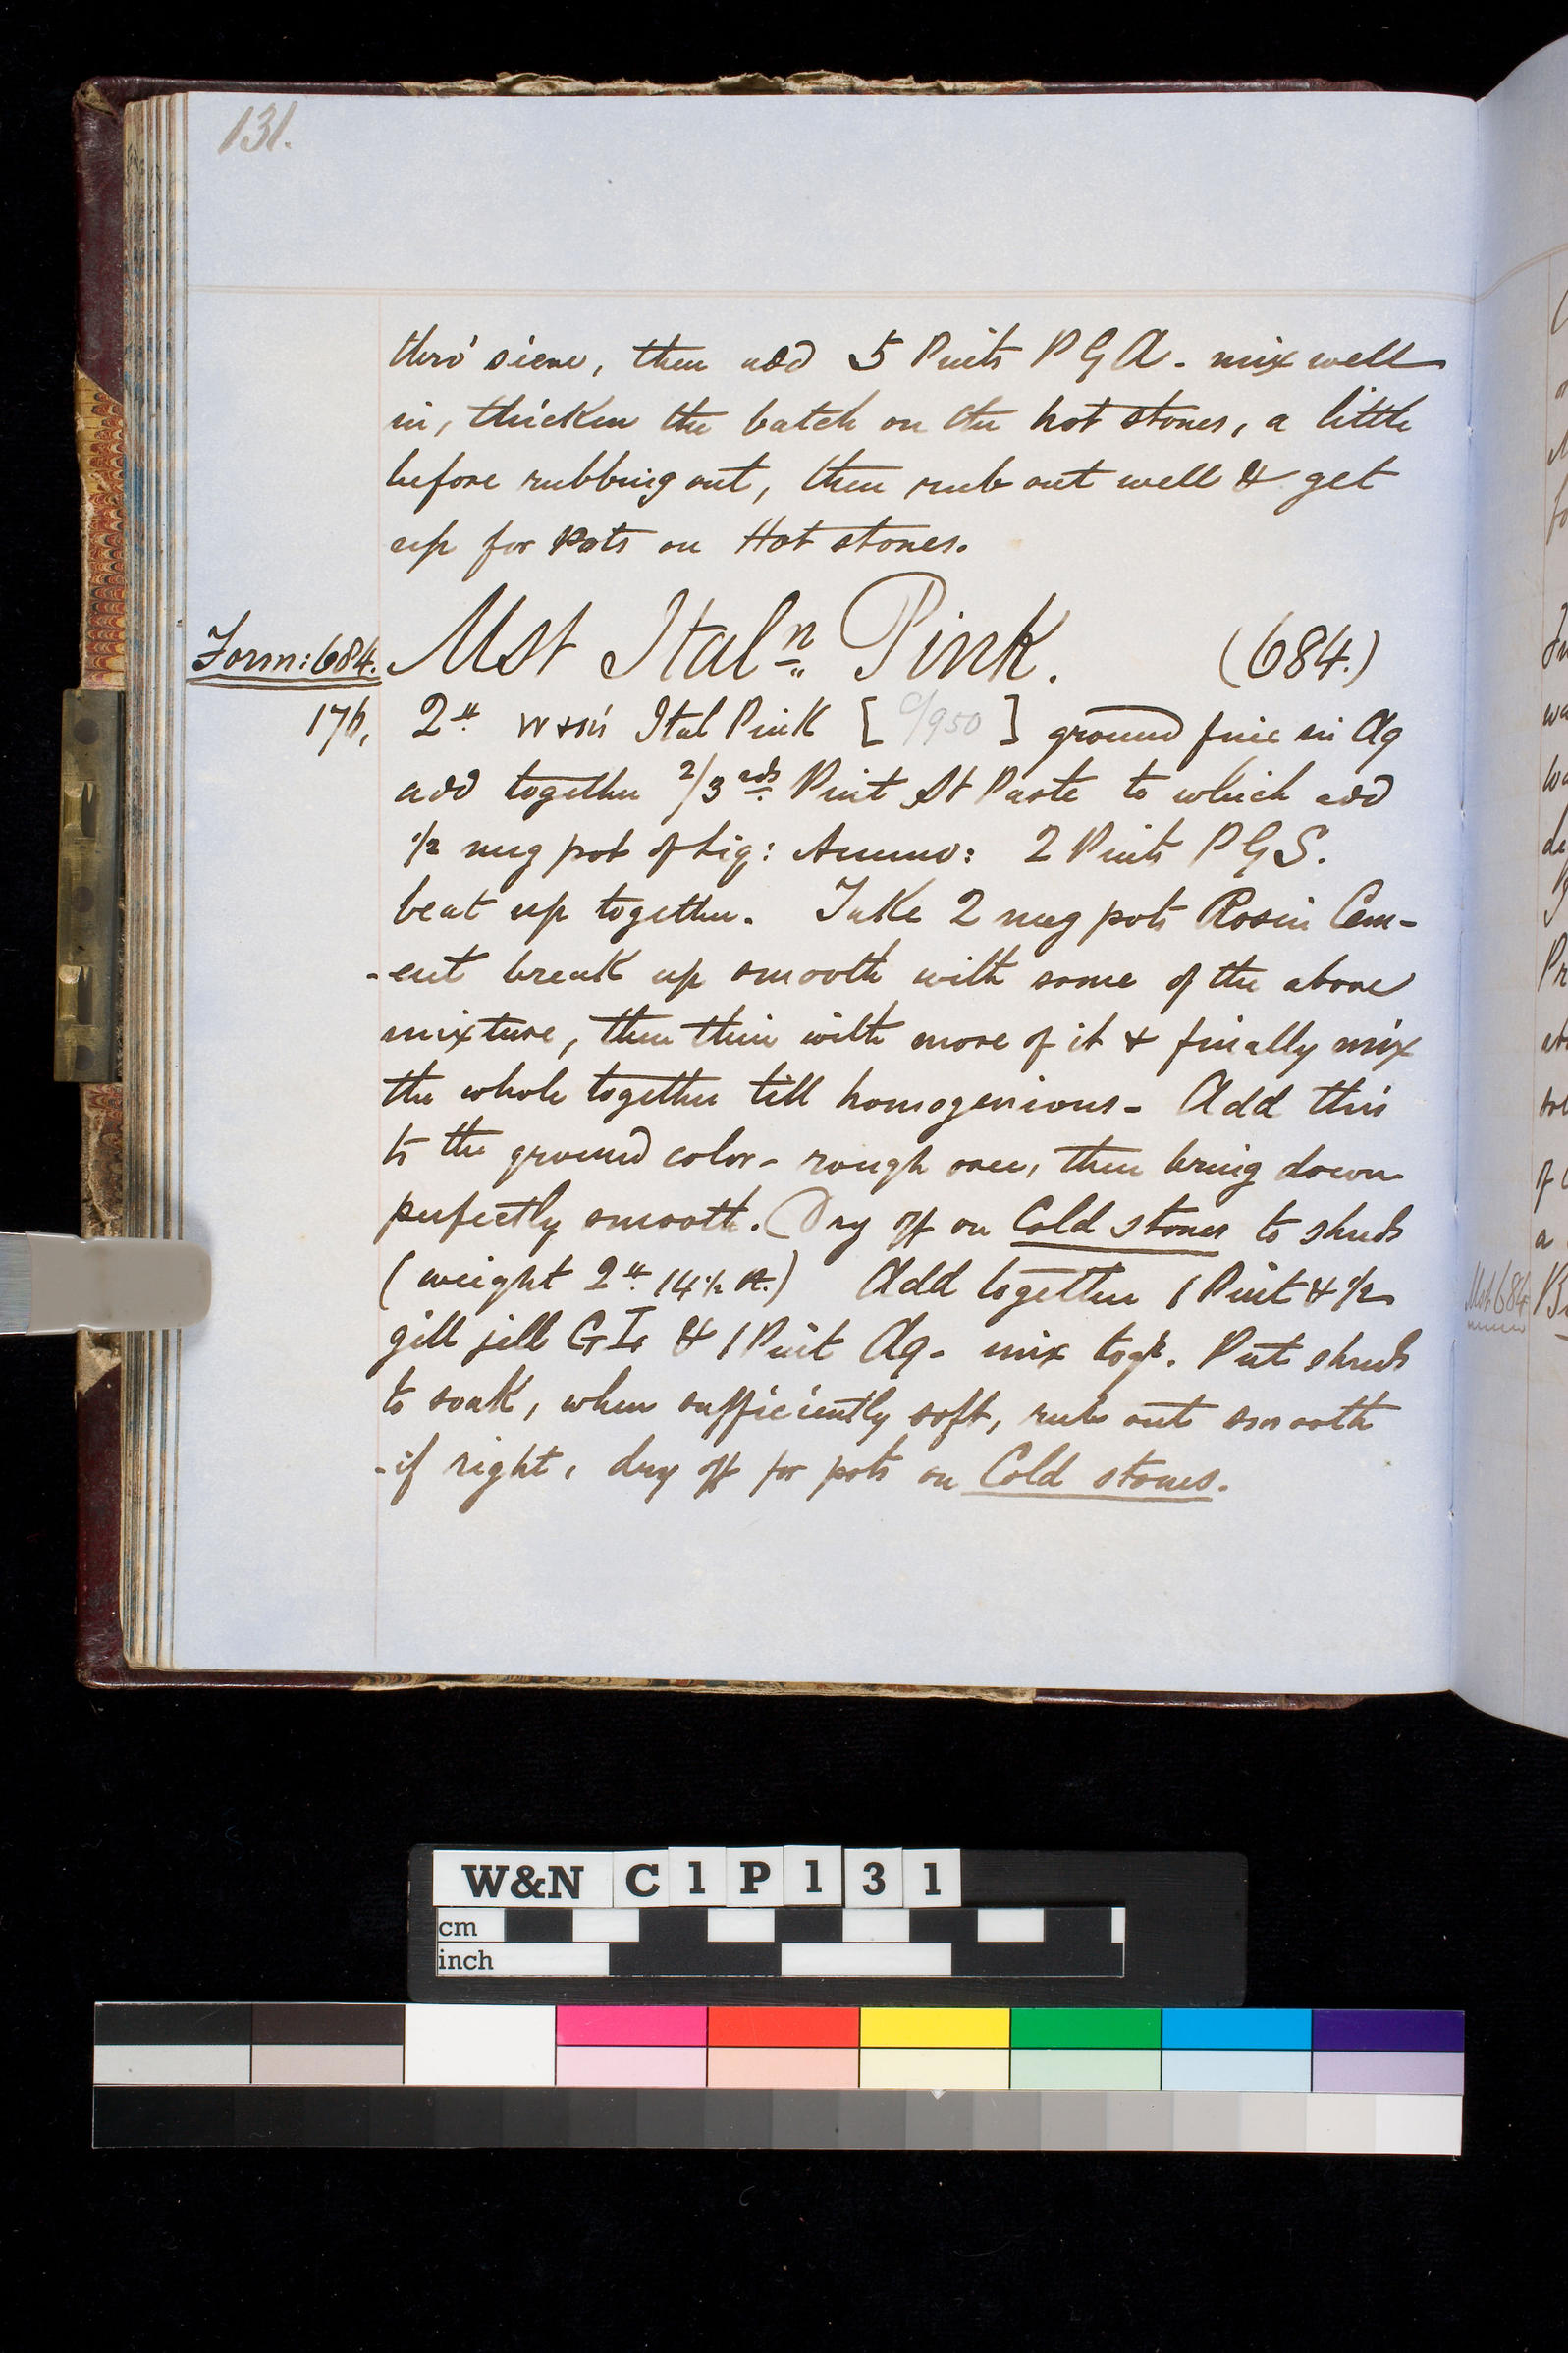 131.
thro' sieve, then add 5 Pints P G A - mix well
in, thicken the batch on the hot stones, a little
before rubbing out, then rub out well & get
up for Pots on Hot stones.
Form: 684. Mst Italn Pink. (684.)
176, 2 lb W&N's Ital Pink [ C/950 ] ground fine in Aq
add together 2/3rds Pint St Paste to which add
1/2 mug pot of Liq: Ammo: 2 Pints P G S.
beat up together. Take 2 mug pots Rosin Cem-
-ent break up smooth with some of the above
mixture, then thin with more of it & finally mix
the whole together till homogenious - Add this
to the ground color - rough over, then bring down
perfectly smooth. Dry off on Cold stones to shreds
( weight 2 lb 14 1/2 oz.) Add together 1 Pint & 1/2
gill jell G I & 1 Pint Aq - mix togr. Put shreds
to soak, when sufficiently soft, rub out smooth
-if right, dry off for pots on Cold stones.
Mst 684
W&N C1P131
cm
inch